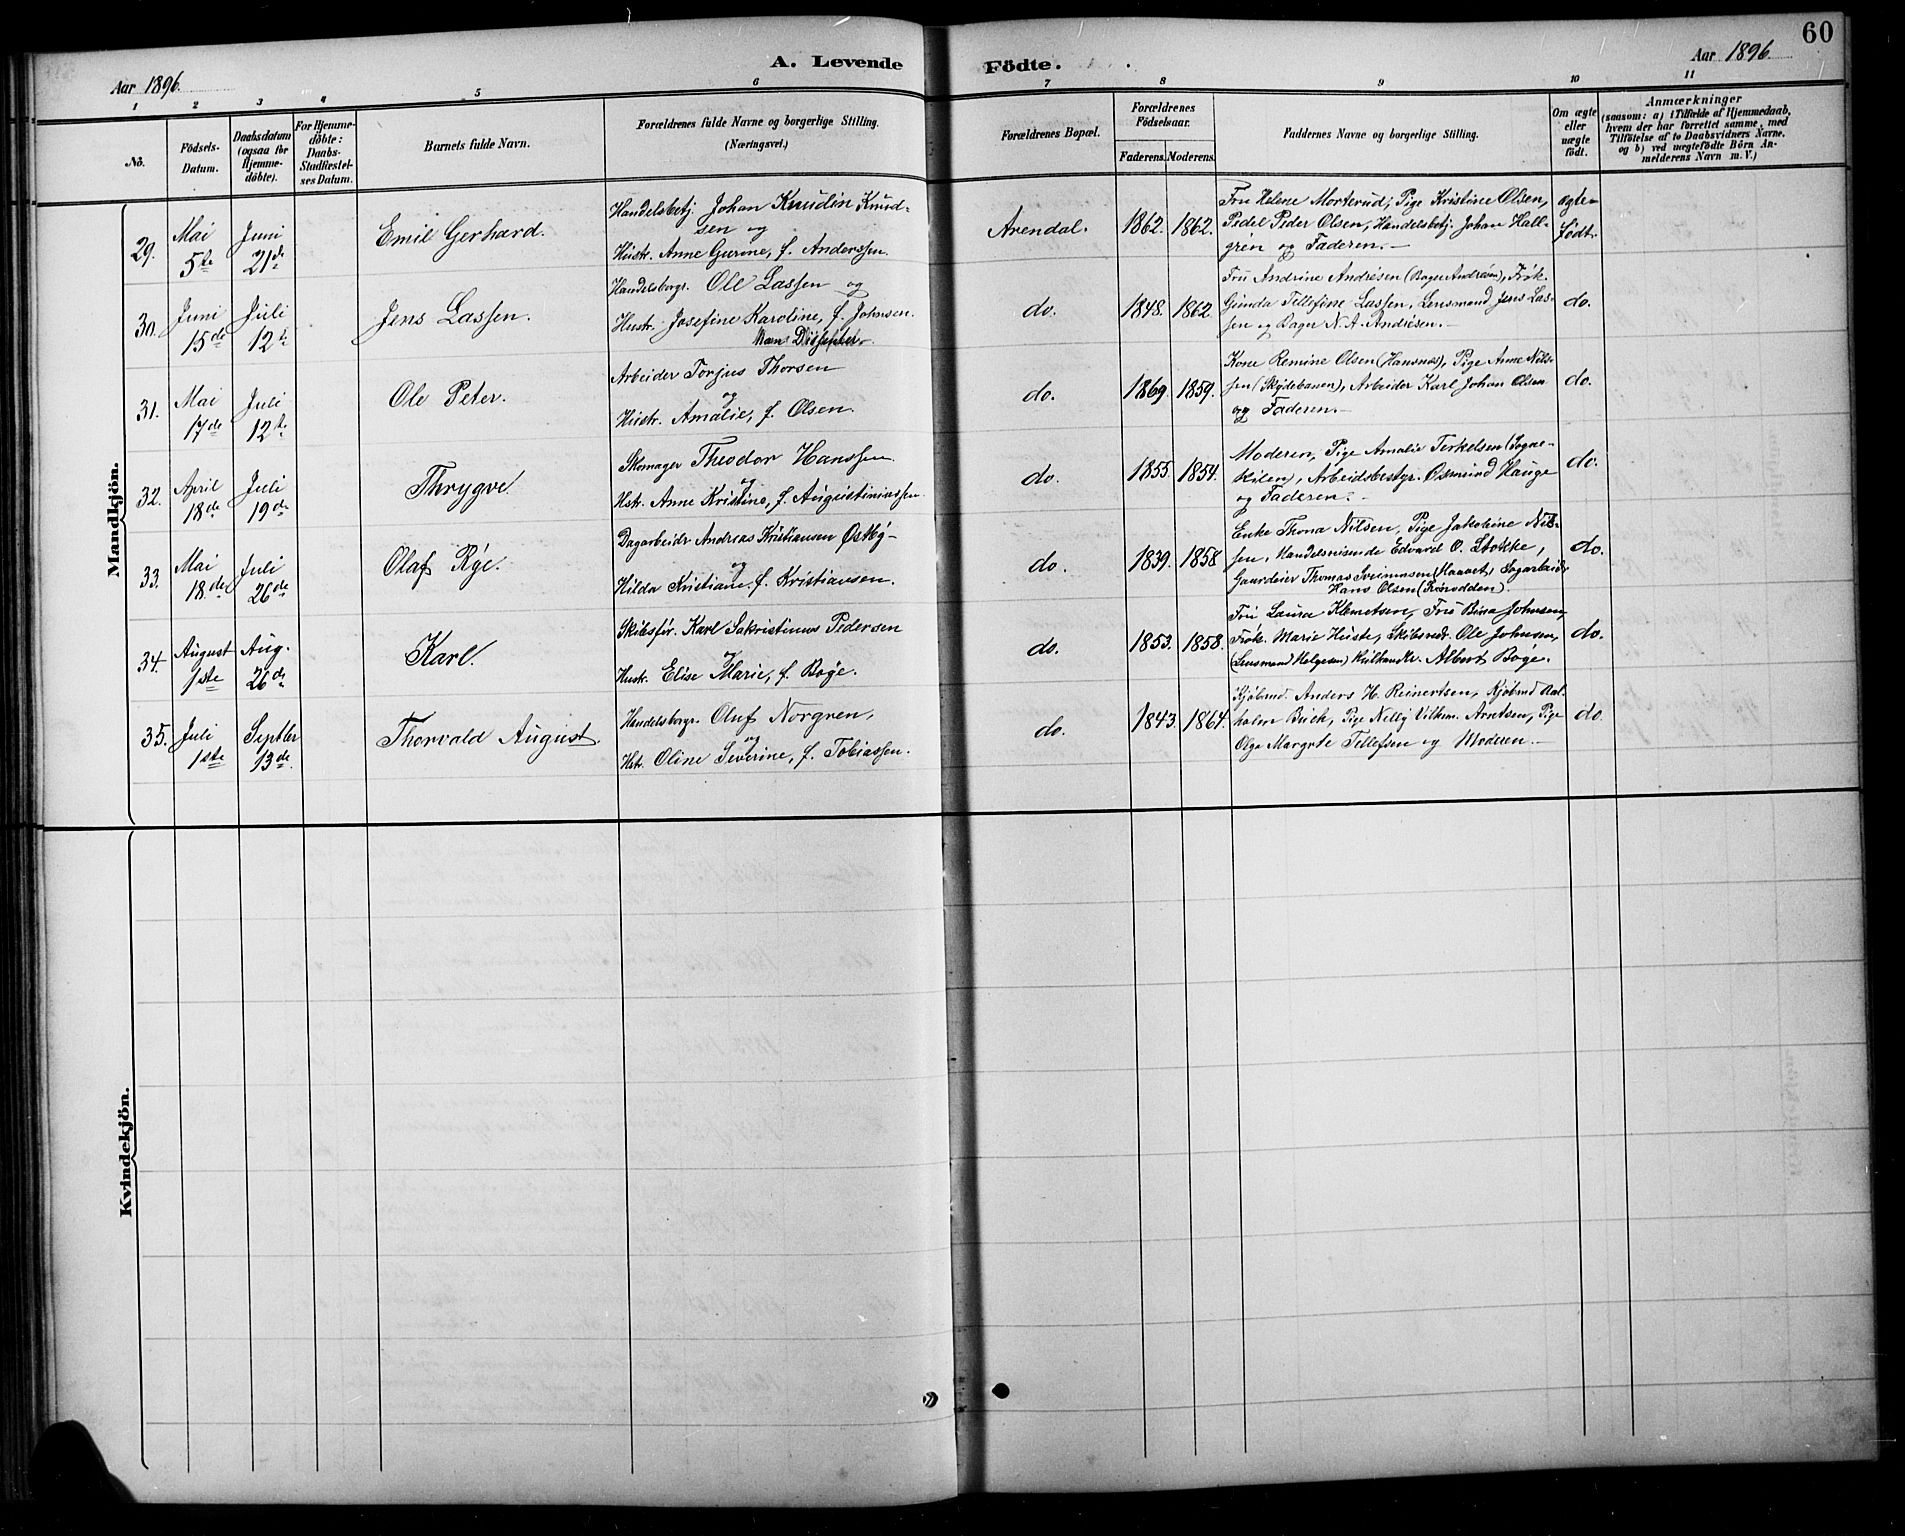 60
A. Levende Födte.
Aar 1896.
Aar 1896.
1 2 3 4 5 6 7 8 9 10 11
No.
Födsels-Datum.
Daabsdatum (ogsaa for Hjemme-döbte).
For Hjemme-döbte: Daabs-Stadfæstel-ses Datum.
Barnets fulde Navn.
Forældrenes fulde Navne og borgerlige Stilling.
(Næringsvei.)
Forældrenes Bopæl.
Forældrenes Födselsaar.
Faderens. Moderens.
Faddernes Navne og borgerlige Stilling.
Om ægte eller uægte födt.
Anmærkninger
(saasom: a) i Tilfælde af Hjemmedaab,
hvem der har forrettet samme, med
Tilföielse af to Daabsvidners Navne.
og b) ved uægtefödte Börn An-
melderens Navn m. V.)
Mandkjön.
29. Mai 5te Juni 21de Emil Gerhard.
Handelsbetj. Johan Knudin Knud-
sen og
Hustr. Anne Gurine, f. Anderssen.
Arendal. 1862. 1862.
Fru Helene Morterud, Pige Kristine Olsen,
Pedel Peder Olsen, Handelsbetj. Johan Hall-
gren og Faderen.-
ægte-födt.
30. Juni 15de Juli 12te Jens Lassen.
Handelsborgr. Ole Lassen og
Hustr. Josefine Karoline, f. Johnsen.
Man Dissenter.
do. 1848. 1862.
Fru Andrine Andrésen (Bager Andrésen), Frök.
Gunda Tellefine Lassen, Lensmand Jens Las-
sen og Bager N. A. Andrésen.-
do.
31. Mai 17de Juli 12te Ole Peter.
Arbeider Torjus Thorsen
og
Hustr. Amalie, f. Olsen.
do. 1869. 1859.
Kone Remine Olsen (Hansnæs), Pige Anne Nils-
sen (Skydebanen), Arbeider Karl Johan Olsen
og Faderen.-
do.
32. April 18de Juli 19de Thrygve.
Skomager Theodor Hanssen
og
Hstr. Anne Kristine, f. Augustiniussen.
do. 1855. 1854.
Moderen, Pige Amalie Terkelsen (Sogne-
kilen, Arbeidsbestyr. Osmund Hauge
og Faderen.-
do.
33. Mai 18.de Juli 26de Olaf Rye.
Dagarbeidr Andreas Kristiansen Østby-
og
Hilda Kristiane, f. Kristiansen.
do. 1839. 1858
Enke Thona Nilsen, Pige Jakobine Nil-
sen, Handelsreisende Edvard O. Stokke,
Gaardeier Thomas Sveinunsen
Hans Olsen
do.
34. August 1ste Aug. 26de Karl.
Skibsför. Karl Sakristinus Pedersen
og
Hustr. Elise Marie, f. Bøge.
do. 1853. 1858.
Fru Laura Klemetsen, Fru Bina Johnsen,
Frøk. Marie Huste, Skibsredr. Ole Johnsen,
(Lensmand Helgesen) Albert Bøge.
do.
35. Juli 1ste Septber 13de. Thorvald August.
Handelsborgr. Oluf Norgren,
og
Hstr. Oline Severine, f. Tobiassen.
do. 1843. 1864.
Kjøbmd. Anders H. Reinertsen, Kjöbmd Aal-
holm Buch, Pige Nelly Vilhm. Arntsen, Pige
Olga Margrete Tellefsen og Moderen.-
do.
Kvindekjön.